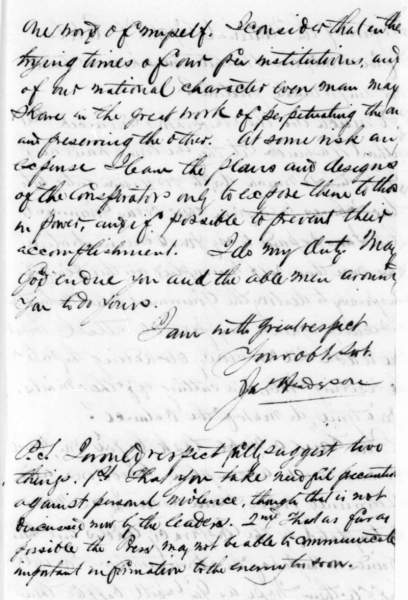 One word of myself. I consider that in the
trying times of our free institutions, and
of our national character even man may
share in the great work of perpetuating the one
and preserving the other. At some risk and
expense I learn the plans and designs
of the conspirators only to expose them to those
in power, and if possible to prevent their
accomplishment. I do my duty. May
God endue you and the able men around
you to do yours.
I am with great respect
Your obt. Svt.
Jas Henderson
P.S. I would respectfully suggest two
things. 1st That you take needful precaution
against personal violence, though that is not
discussed now by the leaders. 2nd That as far as
possible the Press may not be able to communicate
important information to the enemy too soon.